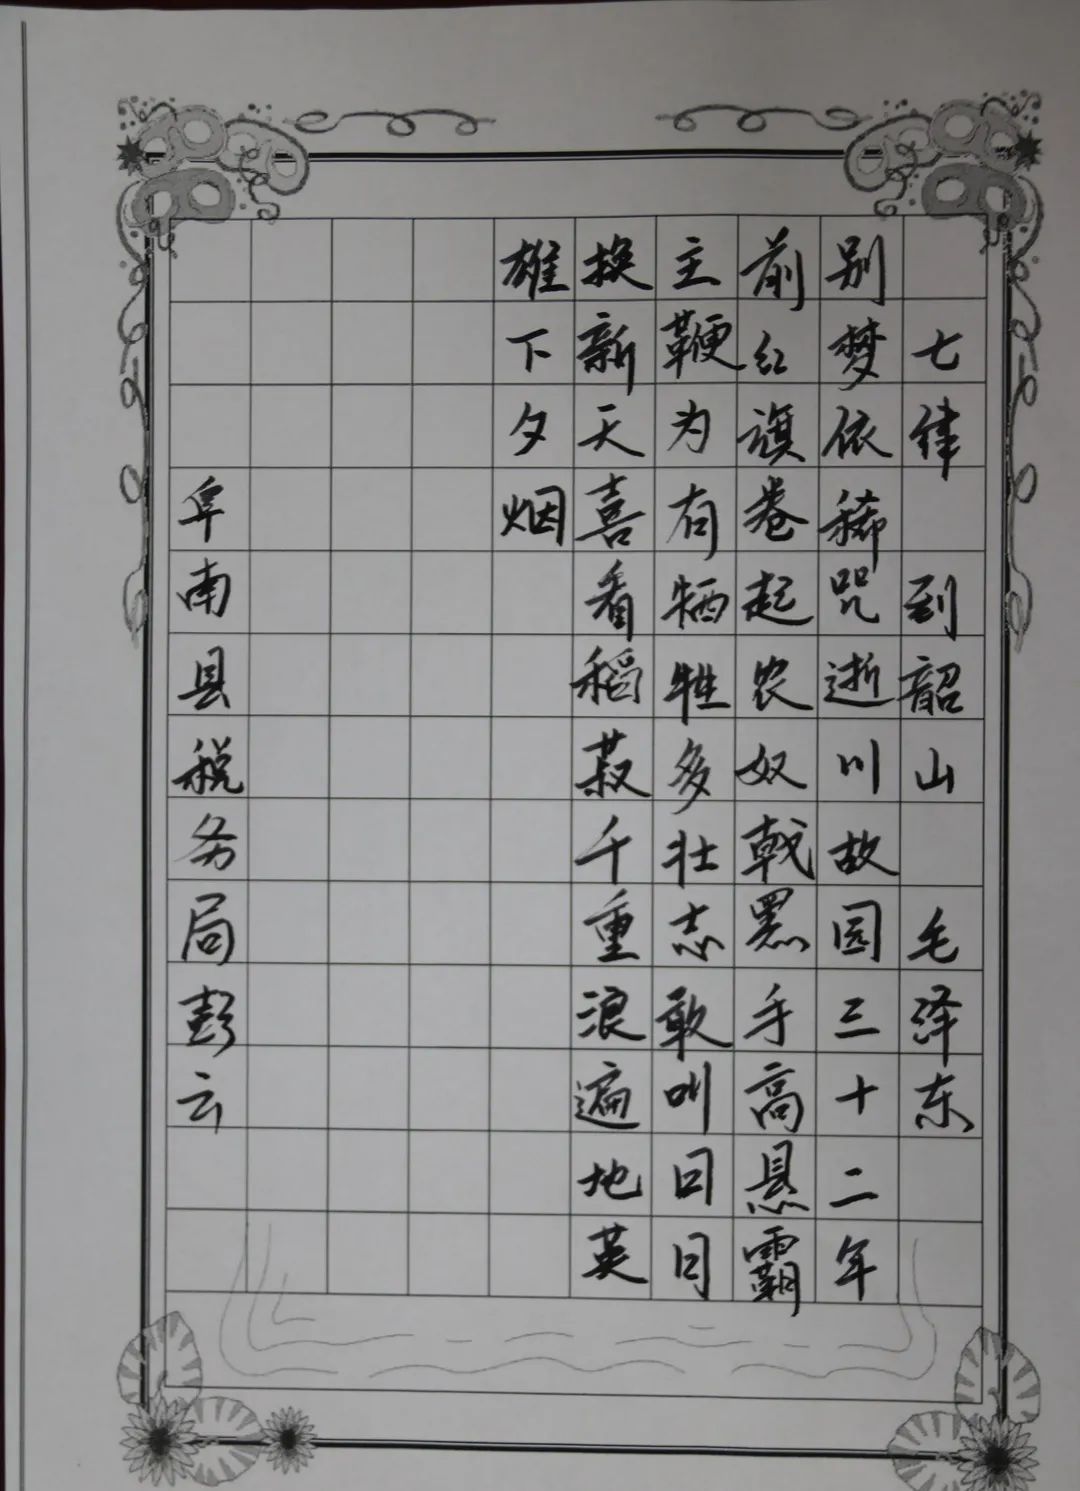 七律 到韶山 毛泽东
别梦依稀咒逝川故园三十二年
前红旗卷起农奴戟黑手高悬霸
主鞭为有牺牲多壮志敢叫日月
换新天喜看稻菽千重浪遍地英
雄下夕烟
阜南县税务局彭云